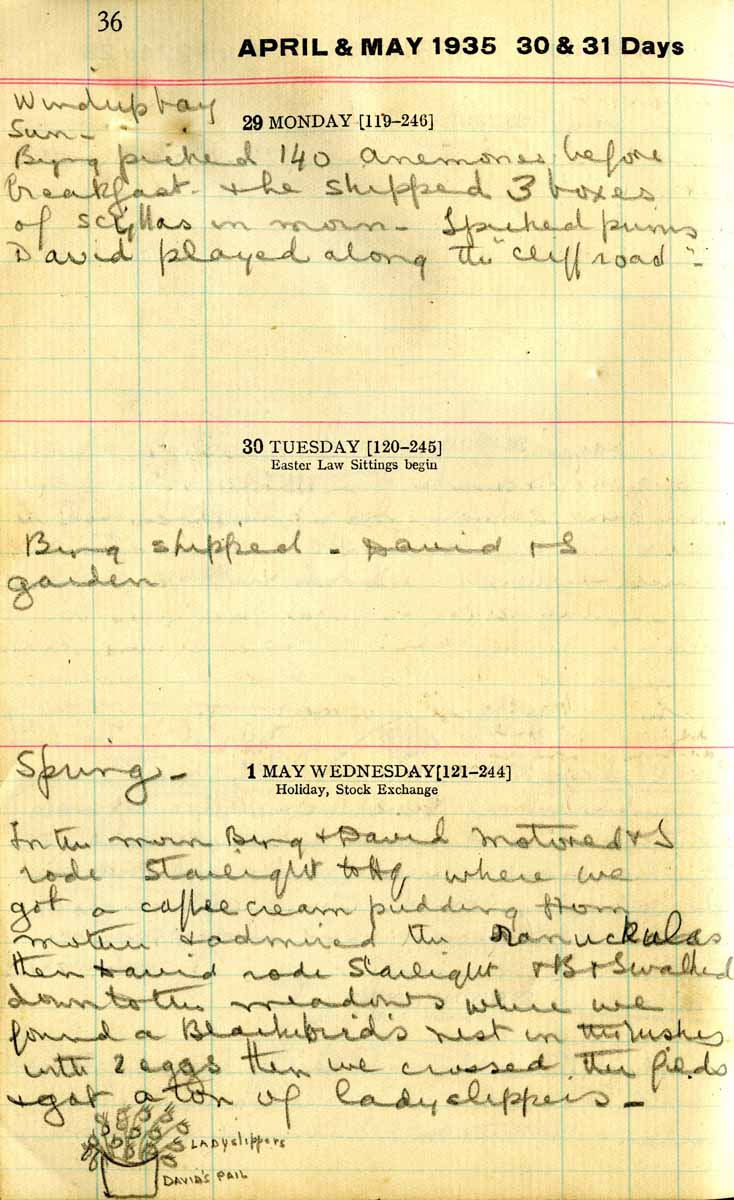 36
APRIL & MAY 1935 30 & 31 Days
29 MONDAY [119–246]
Sun -
picked 140 anemones before
breakfast - & he shipped 3 boxes
of scyllas in morn - I picked prims
David played along the "cliff road" -
30 TUESDAY [120–245]
Easter Law Sittings begin
Byng shipped - David & I
garden
Spring -
1 MAY WEDNESDAY [121–244]
Holiday, Stock Exchange
In the morn Byng & David motored & I
rode Starlight to Hq where we
got a coffee cream pudding from
mother & admired the ranuckulas
then David rode Starlight & B & I walked
down to the meadows where we
found a Blackbird's nest in the rushes
with 2 eggs then we crossed the fields
& got a ton of ladyslippers -
LADYslippers
DAVID'S PAIL